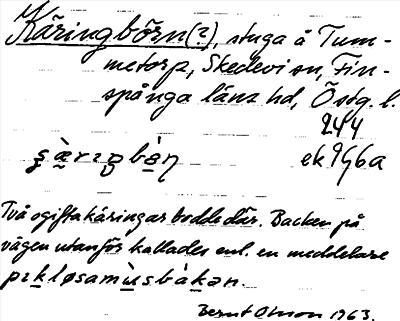 Käringbörn(?), stuga å Tum-
metorp, Skedevi sn, Fin-
spånga läns hd, Östg. l.
244
ek 9g6a
Två ogifta käringar bodde där. Backen på
vägen utanför kallades enl. en meddelare
Bernt Olsson 1963.